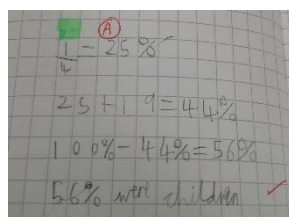 A
1/4 = 25%
25 + 19 = 44%
100% - 44% = 56%
56% were children